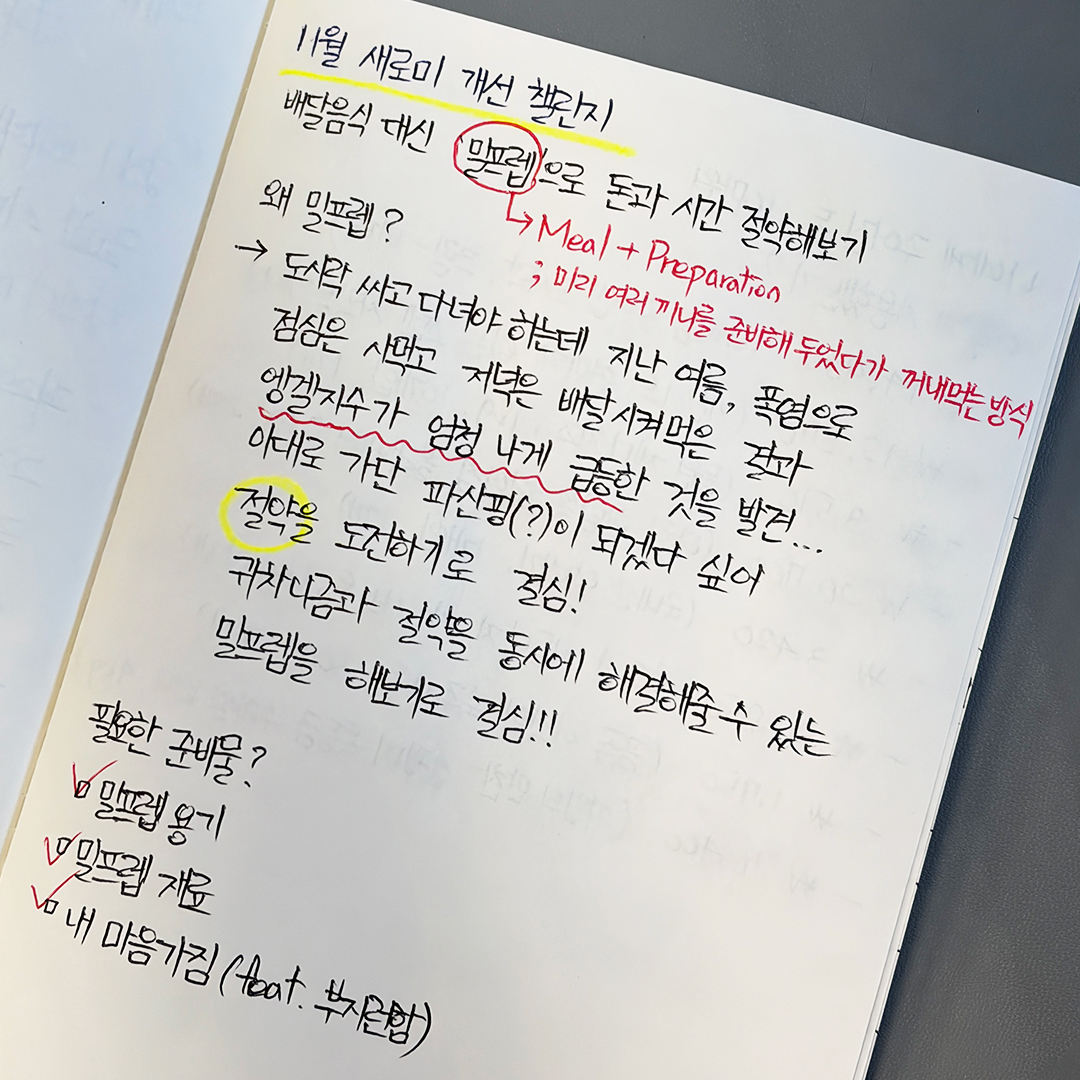 11월 새로미 개선 챌린지
배달음식 대신 '밀프렙'으로 돈과 시간 절약해보기
↳ Meal + Preparation
; 미리 여러 끼니를 준비해 두었다가 꺼내먹는 방식
왜 밀프렙?
→ 도시락 싸고 다녀야 하는데 지난 여름, 폭염으로
점심은 사먹고 저녁은 배달시켜먹은 결과
엥겔지수가 엄청 나게 급등한 것을 발견...
이대로 가단 파산핑(?)이 되겠다 싶어
절약을 도전하기로 결심!
귀차니즘과 절약을 동시에 해결해줄 수 있는
밀프렙을 해보기로 결심!!
필요한 준비물?
밀프렙 용기
밀프렙 재료
내 마음가짐 (feat. 부지런함)